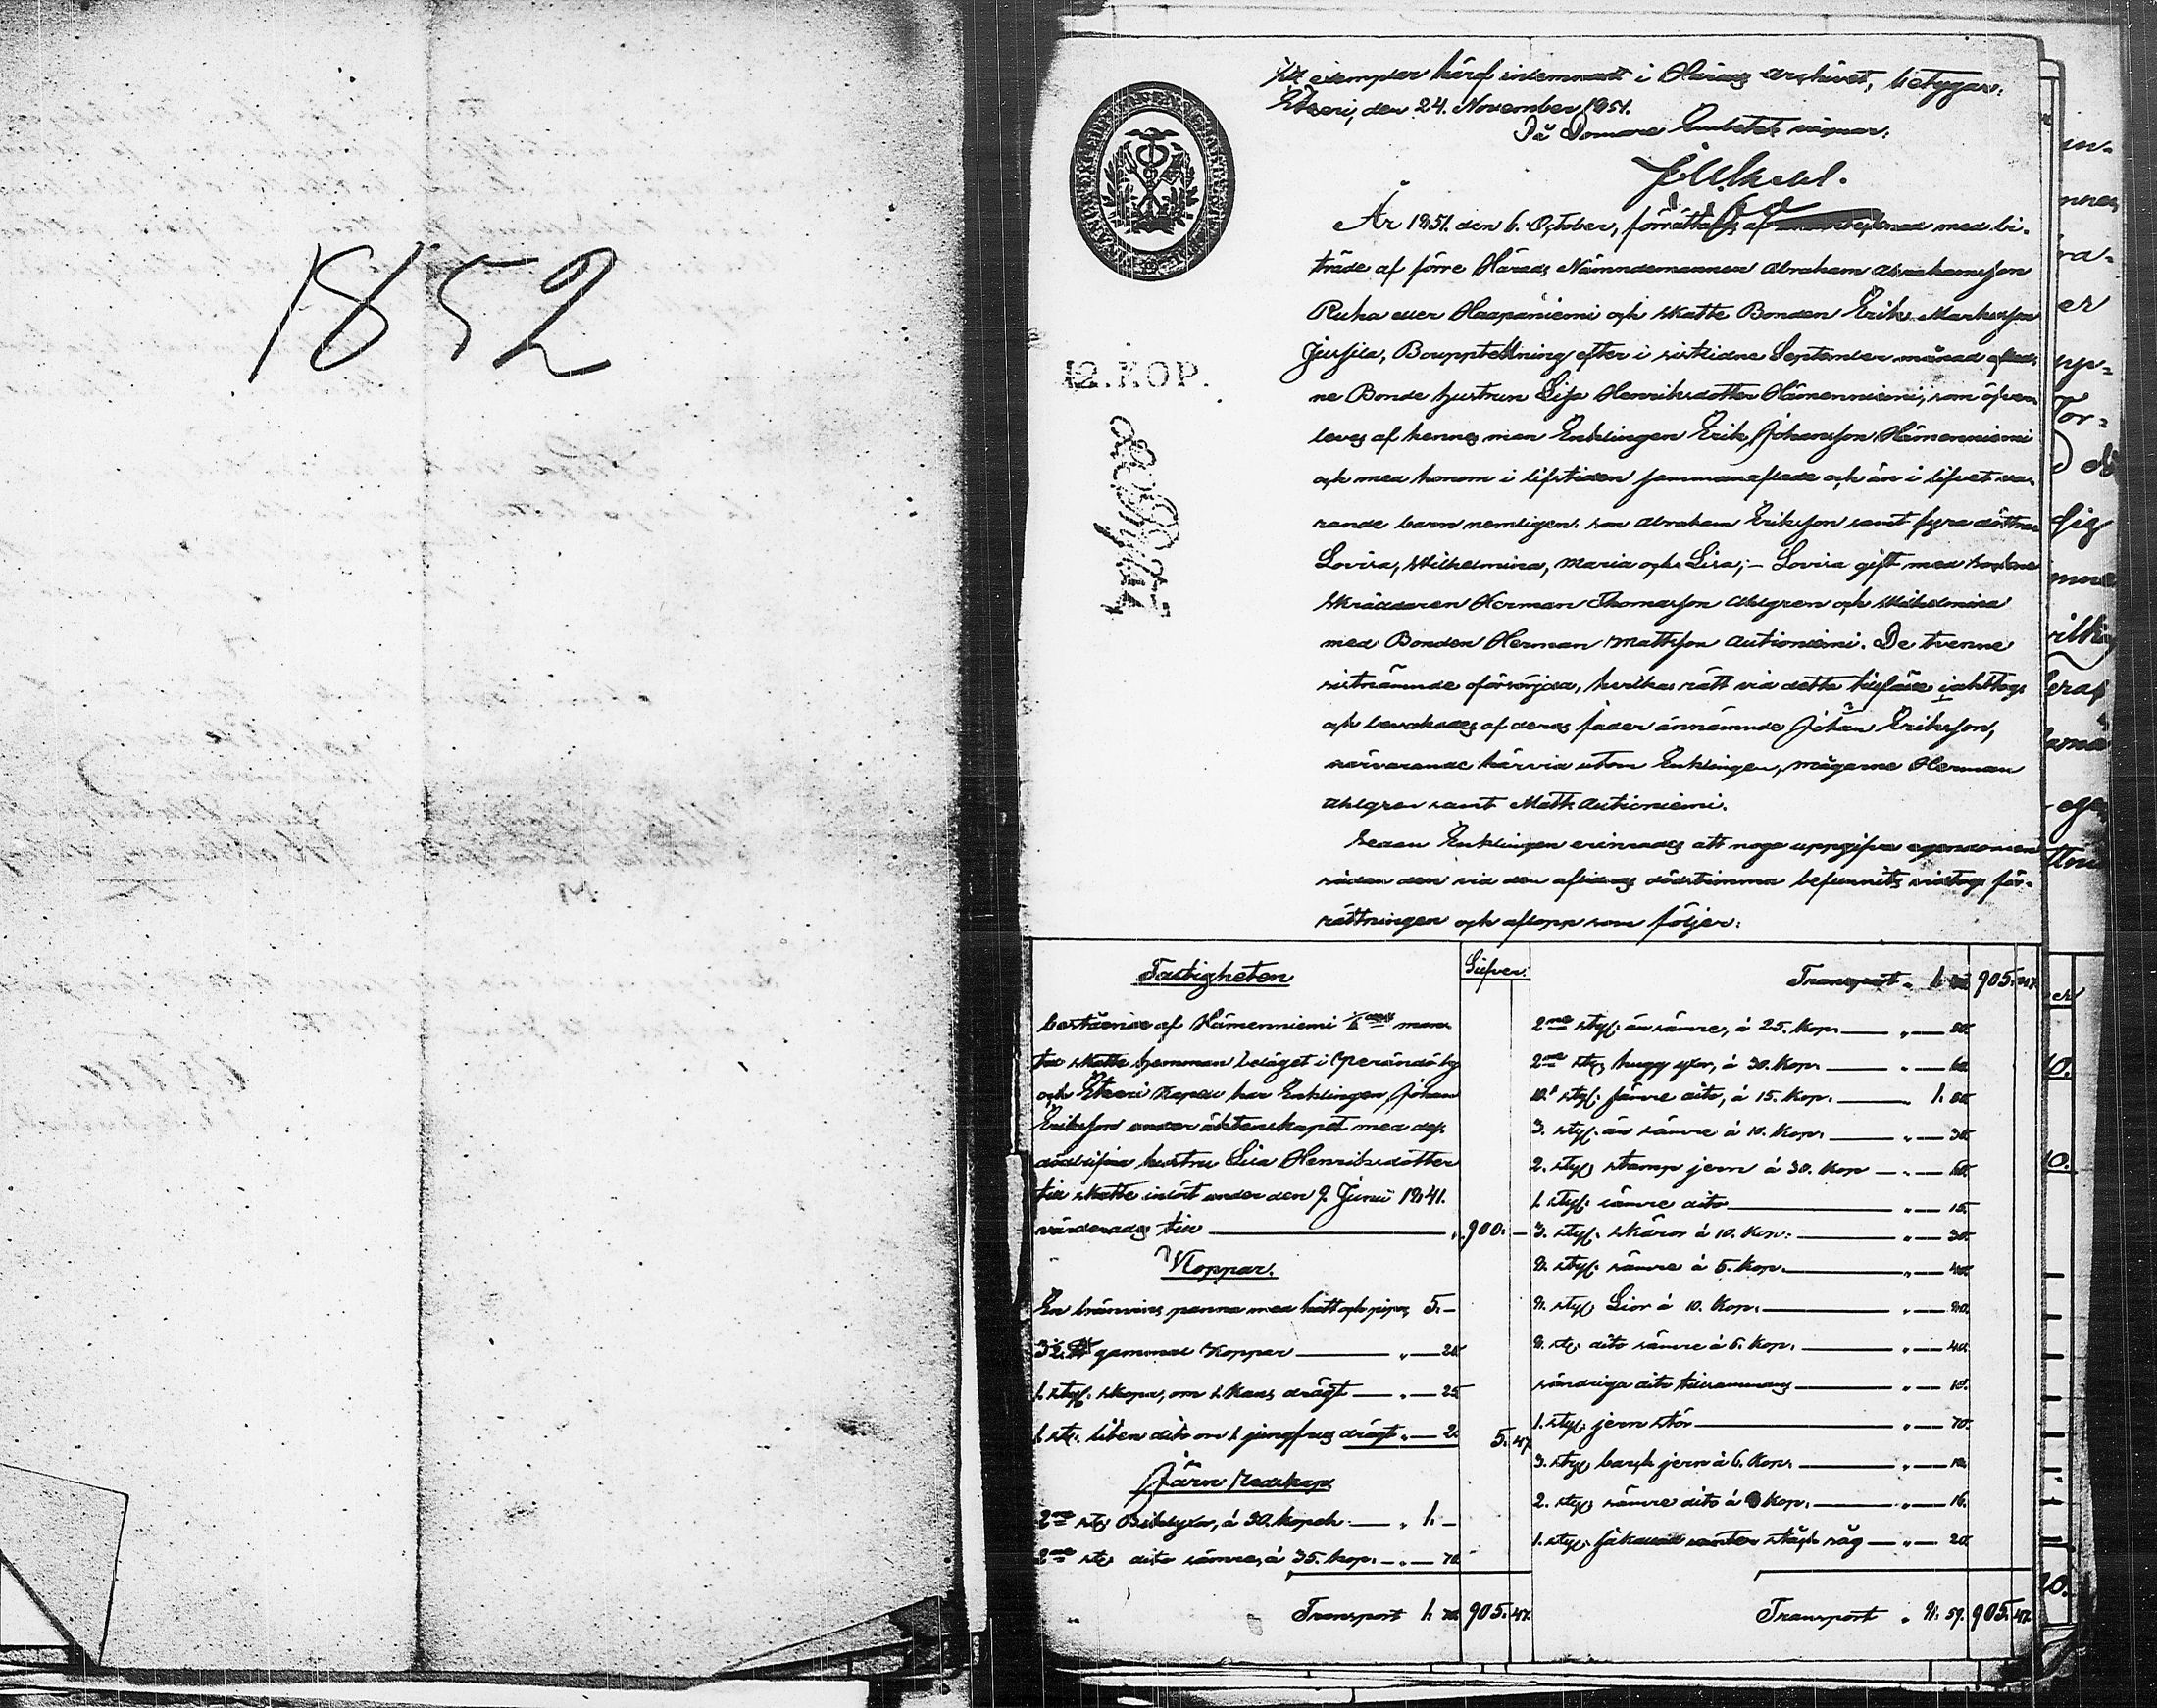 1852
Ett exemplar häraf inlemnadt i Härads Archivet, betygar.
Etseri, den 24. November 1851.
På Domare Embetets vägnar.
12. KOP.
År 1851. den 6. October, förrättades af med bi-
träde af förre Härads Nämndemannen Abraham Abrahamsson
Ruha eller Haapaniemi och skatte Bonden Erik Markusson
Jussila, Bouppteckning efter i sistledne September månad aflid-
ne Bonde hustrun Lisa Henriksdotter Hämenniemi, som öfver-
lefves af hennes man Enklingen Erik Johansson Hämenniemi
och med honom i lifstiden sammanaflade och än i lifvet va-
rande barn nemligen: son Abraham Eriksson samt fyra döttrar
Lovisa, Wilhelmina, Maria och Lisa; – Lovisa gift med
Skräddaren Herman Thomasson Ahlgren och Wilhelmina
med Bonden Herman Mattsson Autioniemi. De tvenne
sistnämnde oförsörjda, hvilkas rätt vid detta tillfälle iakttogs
och bevakades af deras fader ännämnde Johan Eriksson,
närvarande härvid utom Enklingen, mågarne Herman
Ahlgren samt Matts Autioniemi.
Sedan Enklingen erinrades att noga uppgifva egendomen
sådan den vid den aflidnas dödstimma befunnits vidtogs för-
rättningen och aflopp som följer:
Fastigheten
Silfver.
bestående af Hämenniemi man-
tal skatte hemman beläget i Peränä by
och Etseri Kapell har Enklingen Johan
Eriksson under äktenskapet med dess
hustru Lisa Henriksdotter
till skatte inlöst under den 9. Junii 1841.
värderades till 900. –
Koppar.
En bränvins panna med hatt och pipor 5. –
3½ ℔ gammal Koppar " 20.
1. styck skopa, om 1. Kans drägt " 25.
1. st. liten dito om 1. jungfrus drägt " 2. 5. 47.
Järn Redskap
2ne st. Bilyxor, á 50. kopek " 1. –
2ne st. dito sämre, á 35. kop. " 70.
Transport 1. 70. 905. 47.
Transport 1. 70. 905. 47.
2ne styck än sämre, á 25. kop. " 50.
2ne st. hugg yxor, á 30. kop. " 60.
10. styck sämre dito, á 15. kop. 1. 50.
3. styck än sämre á 10. kop. " 30.
2. styck stamp jern á 30. kop " 60.
1. styck sämre dito " 15.
3. styck skäror á 10. kop. " 30.
8. styck sämre á 5. kop. " 40.
8. styck Lior á 10. kop. " 80.
8. st. dito sämre á 5. kop. " 40.
söndriga dito tillsammans " 10.
1. styck jern stör " 70.
3. styck bark jern á 6. kop. " 18.
2. styck sämre dito á 8 kop. " 16.
1. styck såg " 20.
Transport " 8. 59. 905. 47.